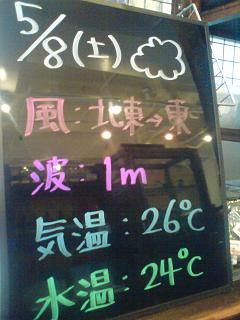 5/8(土)
風:北東→東
波:1m
気温:26℃
水温:24℃